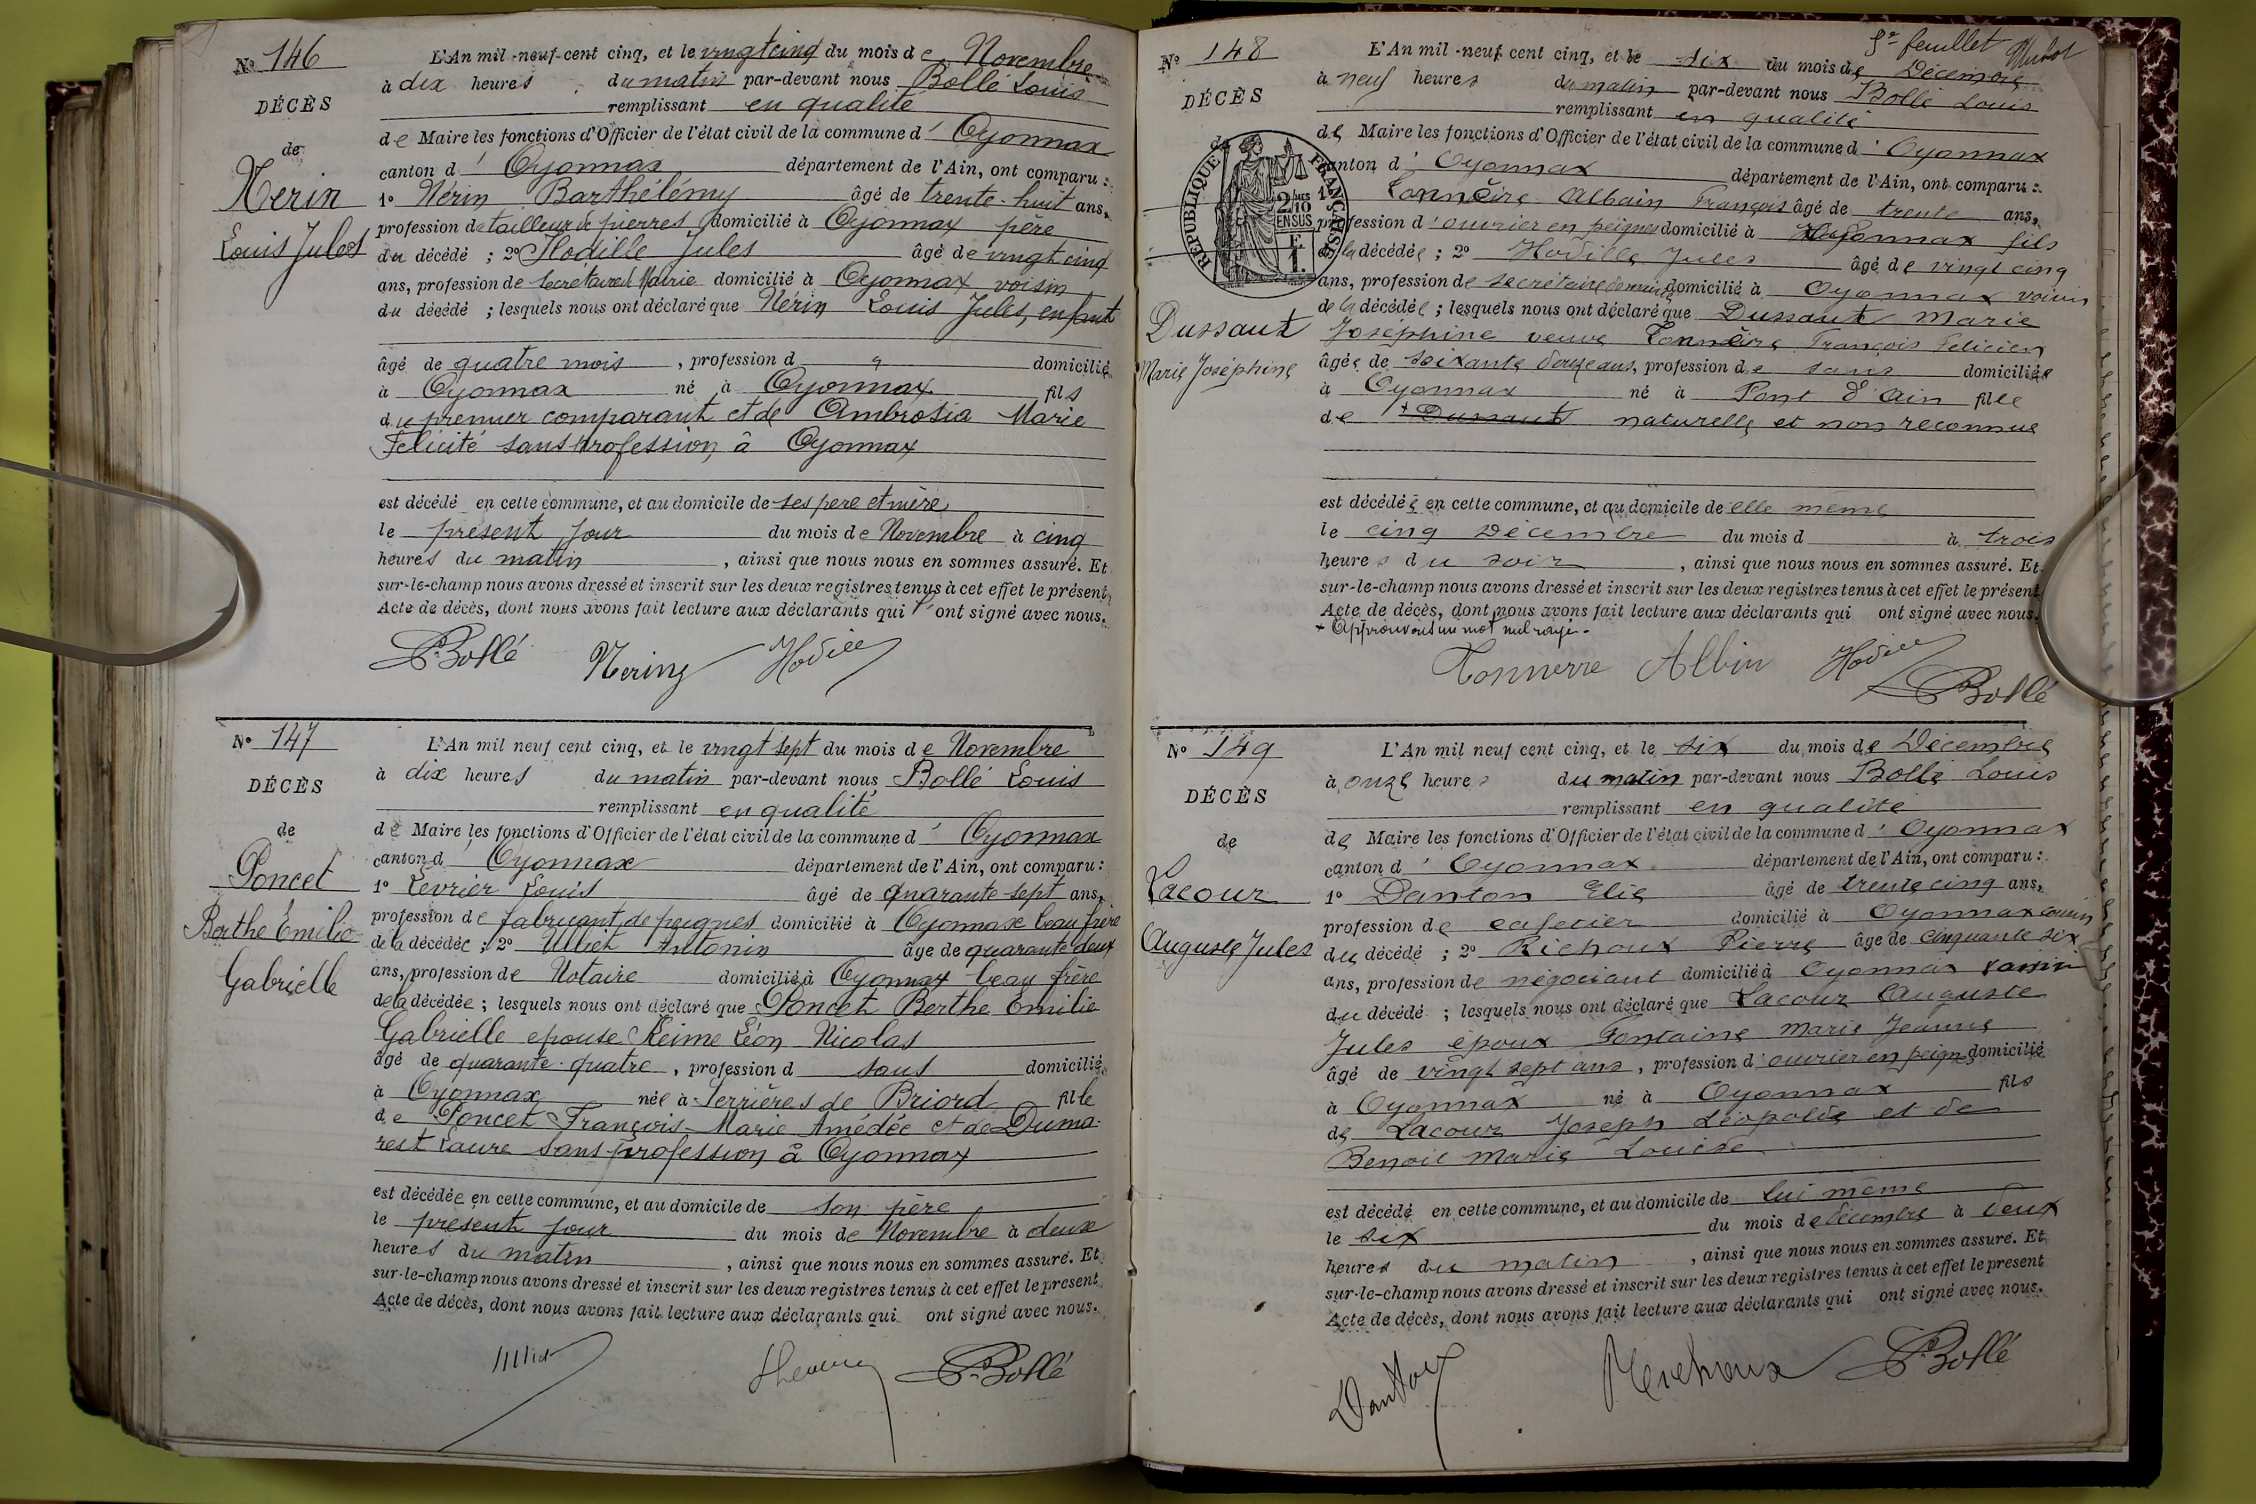 Nº 146
DÉCÈS
de
Nerin
Louis Jules
L'An mil-neuf-cent cinq, et le vingt cinq du mois de Novembre
à dix heures du matin par-devant nous Bollé Louis
remplissant en qualité
de Maire les fonctions d'Officier de l'état civil de la commune d' Oyonnax
canton d' Oyonnax département de l'Ain, ont comparu :
1º Nérin Barthélémy âgé de trente-huit ans,
profession de tailleur de pierres domicilié à Oyonnax père
du décédé ; 2º Hodille Jules âgé de vingt cinq
ans, profession de Secrétaire de Mairie domicilié à Oyonnax voisin
du décédé ; lesquels nous ont déclaré que Nérin Louis Jules, enfant
âgé de quatre mois , profession d domicilié
à Oyonnax né à Oyonnax fils
du premier comparant et de Ambrosia Marie
Félicité sans profession, à Oyonnax
est décédé en cette commune, et au domicile de ses père et mère
le présent jour du mois de Novembre à cinq
heures du matin , ainsi que nous nous en sommes assuré. Et
sur-le-champ nous avons dressé et inscrit sur les deux registres tenus à cet effet le présent
Acte de décès, dont nous avons fait lecture aux déclarants qui l' ont signé avec nous.
L. Bollé Nering Hodille
Nº 147
DÉCÈS
de
Poncet
Berthe Emilie
Gabrielle
L'An mil neuf cent cinq, et le vingt sept du mois de Novembre
à dix heures du matin par-devant nous Bollé Louis
remplissant en qualité
de Maire les fonctions d'Officier de l'état civil de la commune d' Oyonnax
canton d Oyonnax département de l'Ain, ont comparu :
1º Levrier Louis âgé de quarante-sept ans,
profession de fabricant de peignes domicilié à Oyonnax beau frère
de la décédée ; 2º Ulliet Antonin âgé de quarante deux
ans, profession de Notaire domicilié à Oyonnax beau frère
de la décédée ; lesquels nous ont déclaré que Poncet Berthe Emilie
Gabrielle epouse Reime Léon Nicolas
âgé de quarante-quatre , profession d sans domiciliée
à Oyonnax née à Serrières de Briord fille
de Poncet François-Marie Amédée et de Duma-
rest Laure sans profession à Oyonnax
est décédée en cette commune, et au domicile de son père
le présent jour du mois de Novembre à deux
heures du matin , ainsi que nous nous en sommes assuré. Et
sur-le-champ nous avons dressé et inscrit sur les deux registres tenus à cet effet le présent
Acte de décès, dont nous avons fait lecture aux déclarants qui ont signé avec nous.
L. Bollé
5e feuillet
Nº 148
DÉCÈS
de
RÉPUBLIQUE FRANÇAISE
2/10 EN SUS
Dussaut
Marie Joséphine
L'An mil-neuf cent cinq, et le six du mois de Décembre
à neuf heures du matin par-devant nous Bollé Louis
remplissant en qualité
de Maire les fonctions d'Officier de l'état civil de la commune d' Oyonnax
canton d' Oyonnax département de l'Ain, ont comparu :
Tonnerre Albain François âgé de trente ans,
profession d' ouvrier en peignes domicilié à Oyonnax fils
de la décédée ; 2º Hodille Jules âgé de vingt cinq
ans, profession de secrétaire de mairie domicilié à Oyonnax voisin
de la décédée ; lesquels nous ont déclaré que Dussaut Marie
Joséphine veuve Tonnerre François Felicien
âgée de soixante douze ans, profession de sans domiciliée
à Oyonnax né à Pont d'Ain fille
de + Dussaut naturelle et non reconnue
est décédée en cette commune, et au domicile de elle même
le cinq Décembre du mois d à trois
heures du soir , ainsi que nous nous en sommes assuré. Et
sur-le-champ nous avons dressé et inscrit sur les deux registres tenus à cet effet le présent
Acte de décès, dont nous avons fait lecture aux déclarants qui ont signé avec nous.
+ Approuvons un mot nul rayé.
Tonnerre Albin Hodille
L. Bollé
Nº 149
DÉCÈS
de
Lacour
Auguste Jules
L'An mil neuf cent cinq, et le six du mois de Décembre
à onze heures du matin par-devant nous Bollé Louis
remplissant en qualité
de Maire les fonctions d'Officier de l'état civil de la commune d' Oyonnax
canton d' Oyonnax département de l'Ain, ont comparu :
1º Danton Elie âgé de trente cinq ans,
profession de cafetier domicilié à Oyonnax cousin
du décédé ; 2º Richoux Pierre âgé de cinquante six
ans, profession de négociant domicilié à Oyonnax voisin
du décédé ; lesquels nous ont déclaré que Lacour Auguste
Jules époux Fontaine Marie Jeanne
âgé de vingt sept ans , profession d' ouvrier en peignes domicilié
à Oyonnax né à Oyonnax fils
de Lacour Joseph Léopolde et de
Benoit Marie Louise
est décédé en cette commune, et au domicile de lui même
le six du mois de décembre à deux
heures du matin , ainsi que nous nous en sommes assuré. Et
sur-le-champ nous avons dressé et inscrit sur les deux registres tenus à cet effet le présent
Acte de décès, dont nous avons fait lecture aux déclarants qui ont signé avec nous.
Danton Richoux L. Bollé